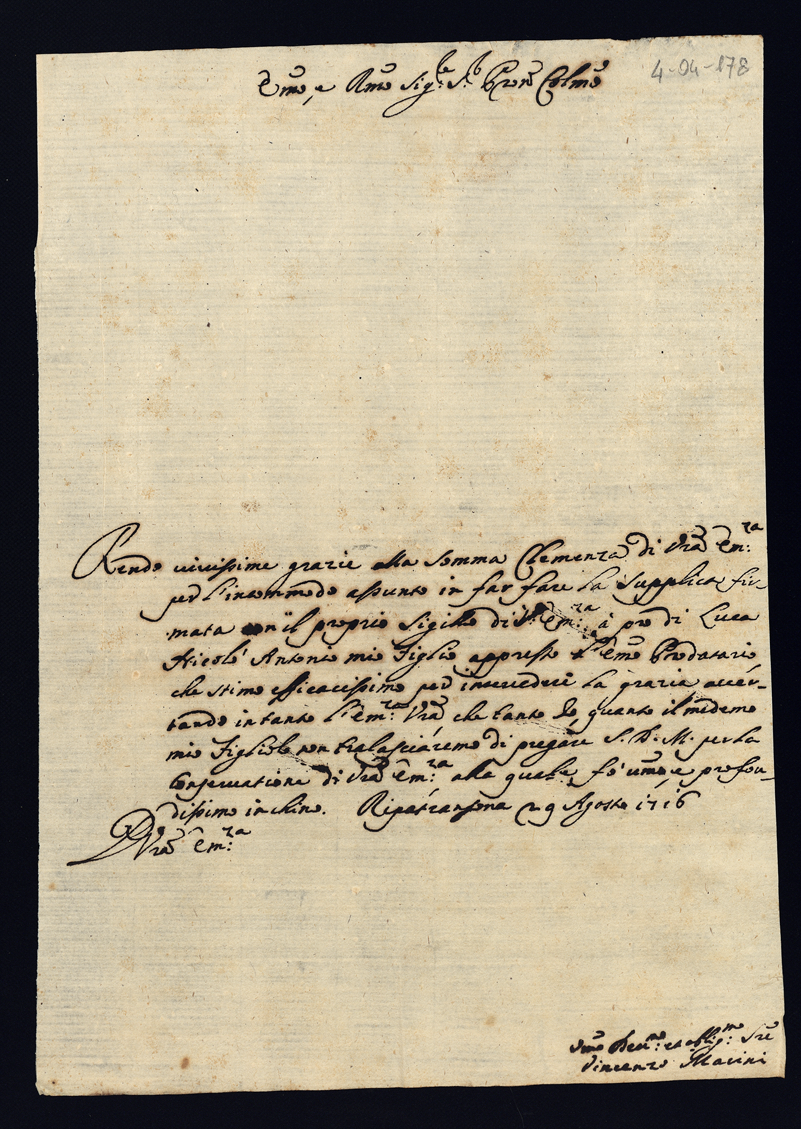 Emo, e Rmo Sig:re S:r Pron Colmo
4-04-178
Rendo vivissime grazie alla Somma Clemenza di Vra Em:za
per l'incommodo assunto in far fare la Supplica fir-
mata con il proprio Sigillo di V:ra Em:za à prò di Luca
Nicolò Antonio mio Figlio appresso l'Emo Prodatario
che stimo efficacissimo per intercedere la grazia accer-
tando intanto l'Em:za Vra che tanto Io, quanto il medemo
mio Figliolo non tralasciaremo di pregare S. D. M. per la
Conservatione di Vra Em:za alla quale fò umo, e profon-
dissimo inchino. Ripatransona 29 Agosto 1716
D Vra Em:za
Umo Devmo: et oblig:mo Sre
Vincenzo Macini